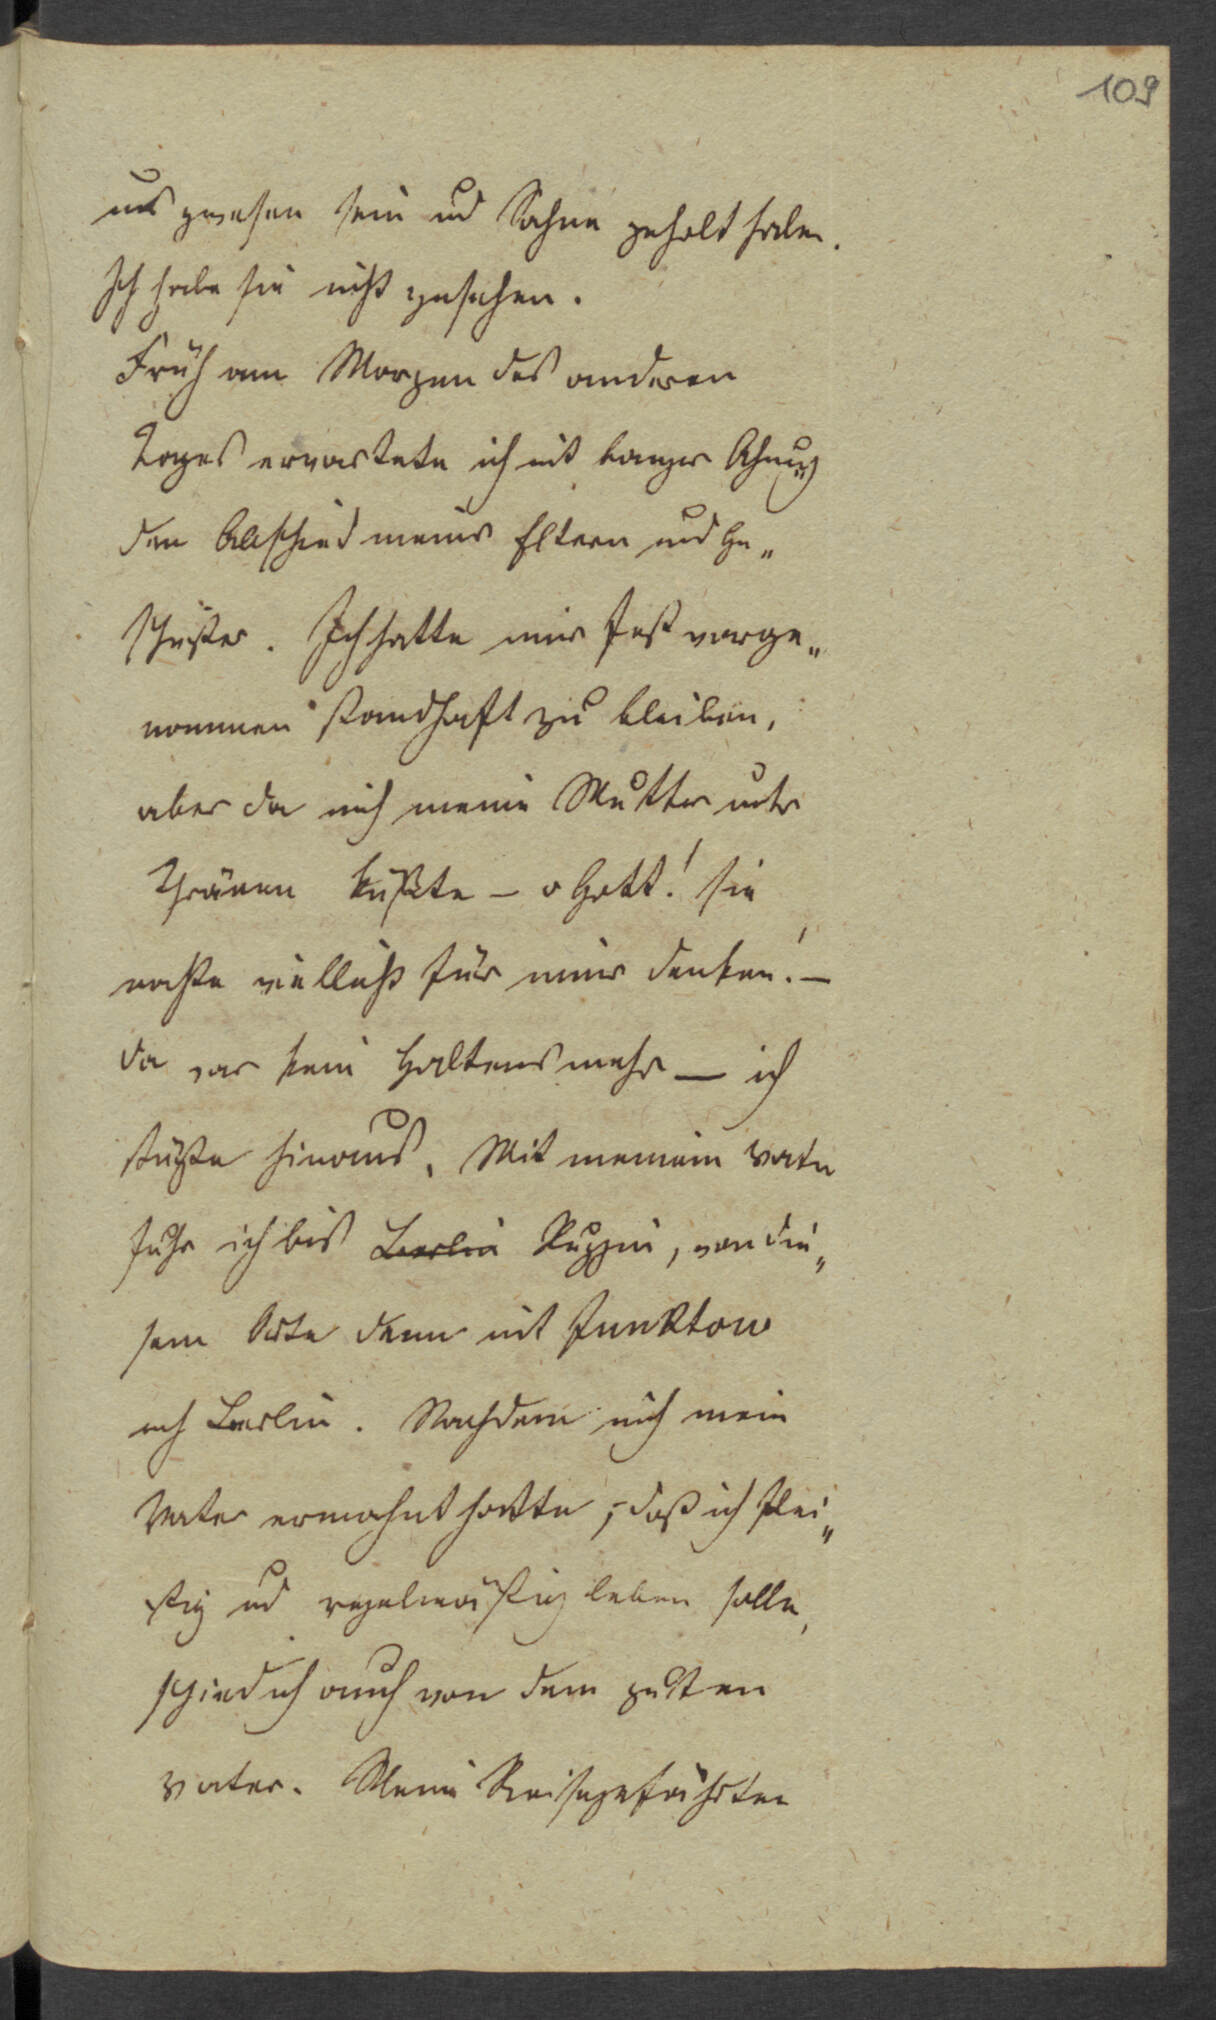 109
uns gewesen sein und Sahne geholt haben.
Ich habe sie nicht gesehen.
Früh am Morgen des anderen
Tages erwartete ich mit banger Ahnung
den Abschied meiner Eltern und Ge„
schwister. Ich hatte mir fest vorge„
nommen standhaft zu bleiben,
aber da mich meine Mutter unter
Thränen küßte – o Gott! sie
mochte vielleicht für immer denken! –
da war kein Haltens mehr – ich
stürzte hinaus. Mit meinem Vater
fuhr ich bis Berlin Ruppin, von die„
sem Orte dann mit
nach Berlin. Nachdem mich mein
Vater ermahnt hatte, daß ich flei„
ßig und regelmäßig leben solle,
schied ich auch von dem guten
Vater. Meine Reisegefährten